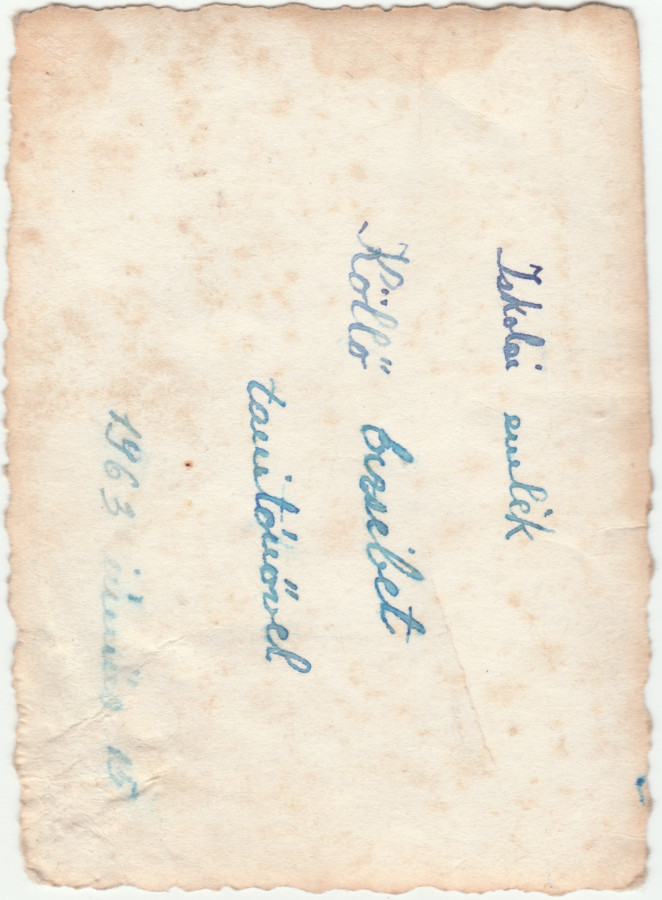 Iskolai emlék
Köllő Erzsébet
tanitónővel
1963 június 15